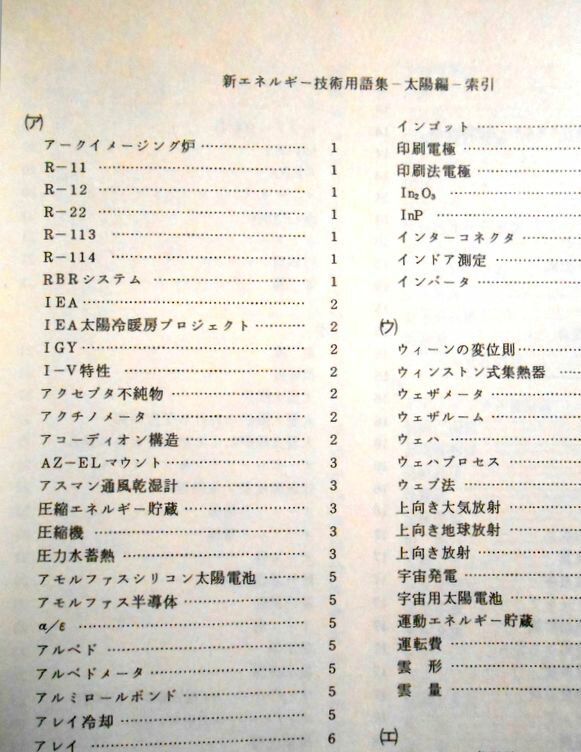 新エネルギー技術用語集－太陽編－索引
(ア)
アークイメージング炉……………… 1
R－11 ……………………………… 1
R－12 ……………………………… 1
R－22 ……………………………… 1
R－113 …………………………… 1
R－114 …………………………… 1
RBRシステム ……………………… 1
IEA………………………………… 2
IEA太陽冷暖房プロジェクト……… 2
IGY………………………………… 2
I－V特性 ………………………… 2
アクセプタ不純物 ………………… 2
アクチノメータ …………………… 2
アコーディオン構造 ……………… 2
AZ－ELマウント…………………… 3
アスマン通風乾湿計 ……………… 3
圧縮エネルギー貯蔵 ……………… 3
圧縮機 ……………………………… 3
圧力水蓄熱 ………………………… 3
アモルファスシリコン太陽電池 …… 5
アモルファス半導体 ……………… 5
α/ε ………………………………… 5
アルベド …………………………… 5
アルベドメータ …………………… 5
アルミロールボンド ……………… 5
アレイ冷却 ………………………… 5
アレイ ……………………………… 6
インゴット …………………
印刷電極 …………………
印刷法電極 …………………
In₂O₃ …………………
InP …………………
インターコネクタ …………………
インドア測定 …………………
インバータ …………………
(ウ)
ウィーンの変位則…………………
ウィンストン式集熱器 ……
ウェザメータ …………………
ウェザルーム …………………
ウェハ …………………
ウェハプロセス …………………
ウェブ法 …………………
上向き大気放射 …………………
上向き地球放射 …………………
上向き放射 …………………
宇宙発電 …………………
宇宙用太陽電池 …………………
運動エネルギー貯蔵 …………
運転費 …………………
雲　形 …………………
雲　量 …………………
(エ)